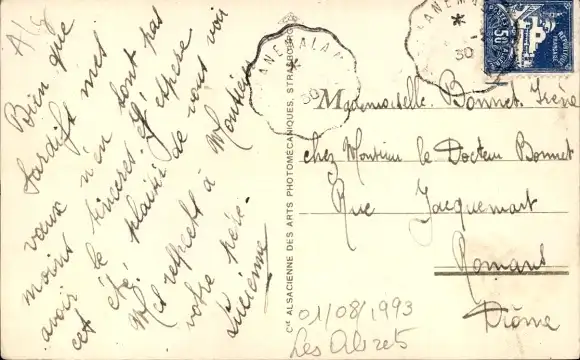 A/S
Bien que
tardifs mes
vœux n'en sont pas
moins sincères. J'espère
avoir le plaisir de vous voir
cet été.
Mes respects à Monsieur
votre père.
Lucienne
Cie ALSACIENNE DES ARTS PHOTOMÉCANIQUES, STRASBOURG
*
30
*
30
50c
Mademoiselle Bonnet Irène
chez Monsieur le Docteur Bonnet
Rue Jacquemart
Romans
Drôme
01/08/1993
Les Alizets